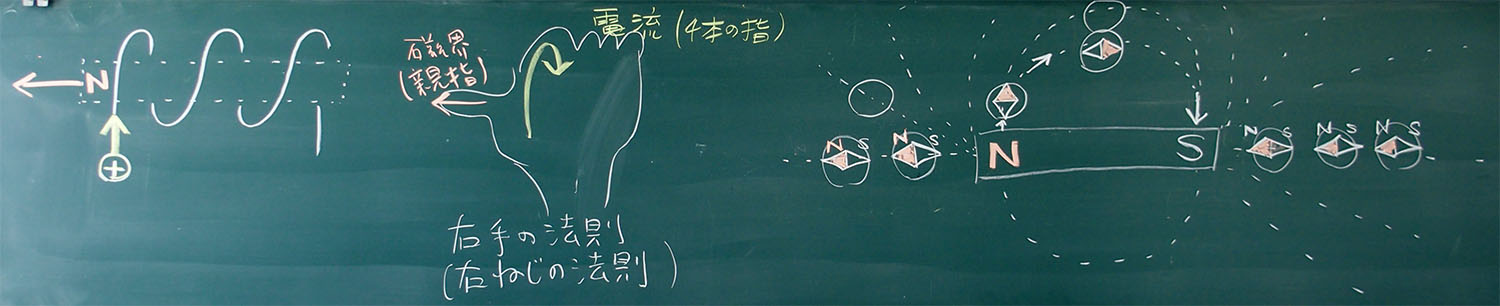 N
+
電流(4本の指)
磁界
(親指)
右手の法則
(右ねじの法則)
N S
N S
N S
N S
N S
N S